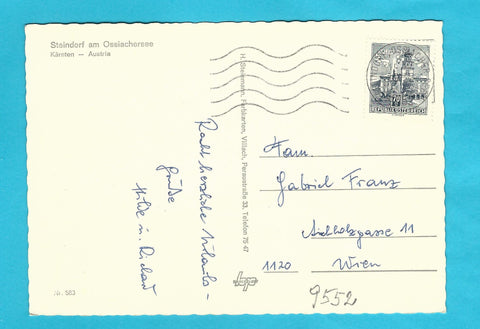 Steindorf am Ossiachersee
Kärnten — Austria
Recht herzliche Urlaubs-
grüße
Hilde u. Richard
H. Steinmann, Farbkarten, Villach, Peraustraße 33, Telefon 75 47
REPUBLIK ÖSTERREICH
Fam.
Gabriel Franz
Aichholzgasse 11
1120 Wien
9552
Nr. 563